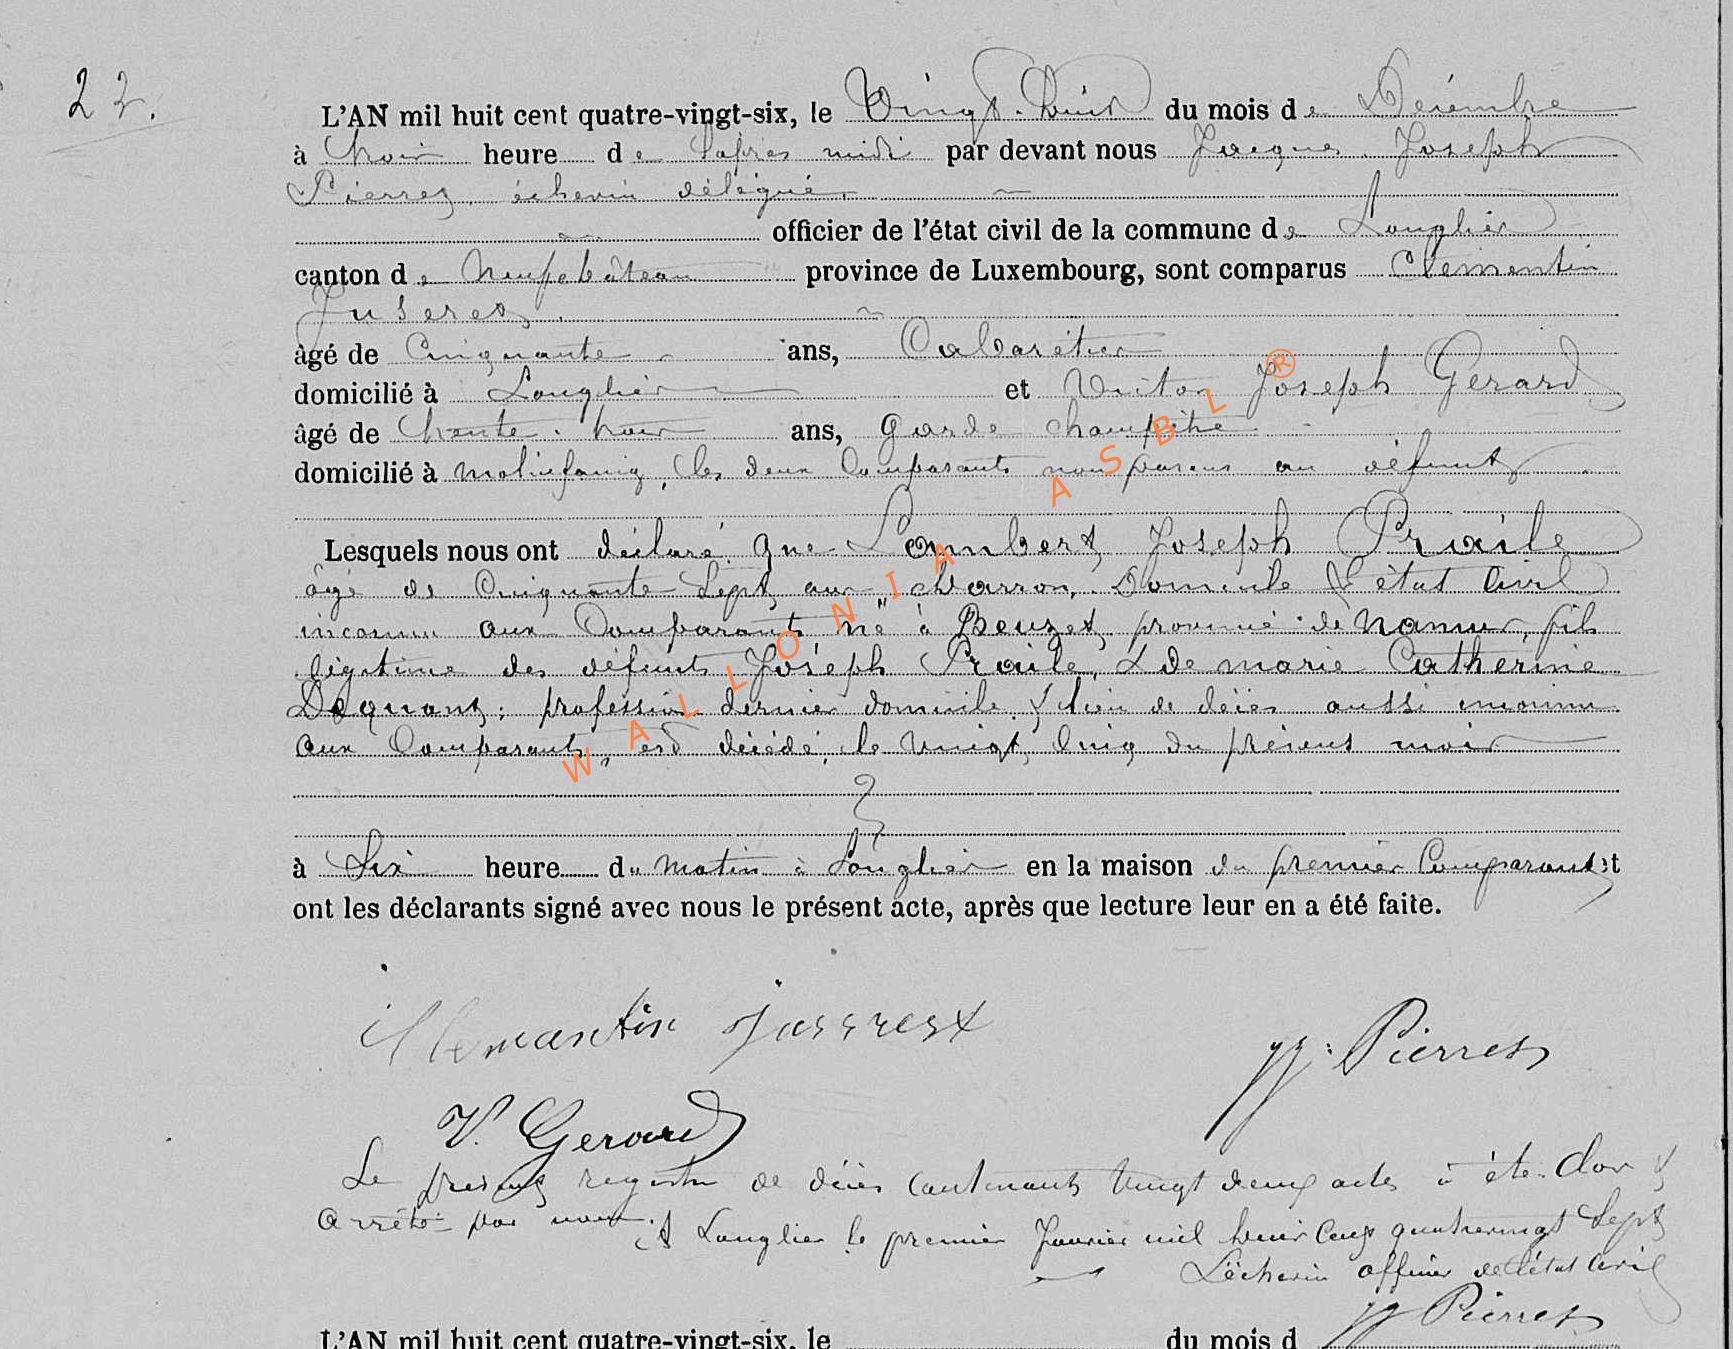 22.
L'AN mil huit cent quatre-vingt-six, le Vingt-huit du mois de Décembre
à trois heure de l'après midi par devant nous Jacques Joseph
Pierret, échevin délégué,
officier de l'état civil de la commune de Longlier
canton de Neufchâteau province de Luxembourg, sont comparus Clémentin
Juseret,
âgé de Cinquante ans, Cabaretier
domicilié à Longlier et Victor Joseph Gerard
âgé de trente-trois ans, Garde champêtre
domicilié à molinfaing, les deux Comparants non parens au défunt
Lesquels nous ont déclaré que Lambert Joseph Praile
âgé de Cinquante Sept ans, charron, Domicile & état Civil
inconnu aux Comparants né à Beuzet, province de Namur, fils
légitime des défunts Joseph Praile, & de marie Catherine
Dequant; profession dernier domicile & lieu de décès aussi inconnu
aux Comparants, est décédé, le vingt cinq du présent mois
à Six heure du matin à Longlier en la maison du premier Comparant et
ont les déclarants signé avec nous le présent acte, après que lecture leur en a été faite.
Clemantin Jusseret
JJ. Pierret
V. Gerard
Le present registre de décès contenant vingt deux actes à été clos &
arrêté par nous. A Longlier le premier Janvier mil huit cent quatrevingt Sept
L'échevin officier de l'état civil
JJ Pierret
L'AN mil huit cent quatre-vingt-six, le du mois d
WALLONIA ASBL ®